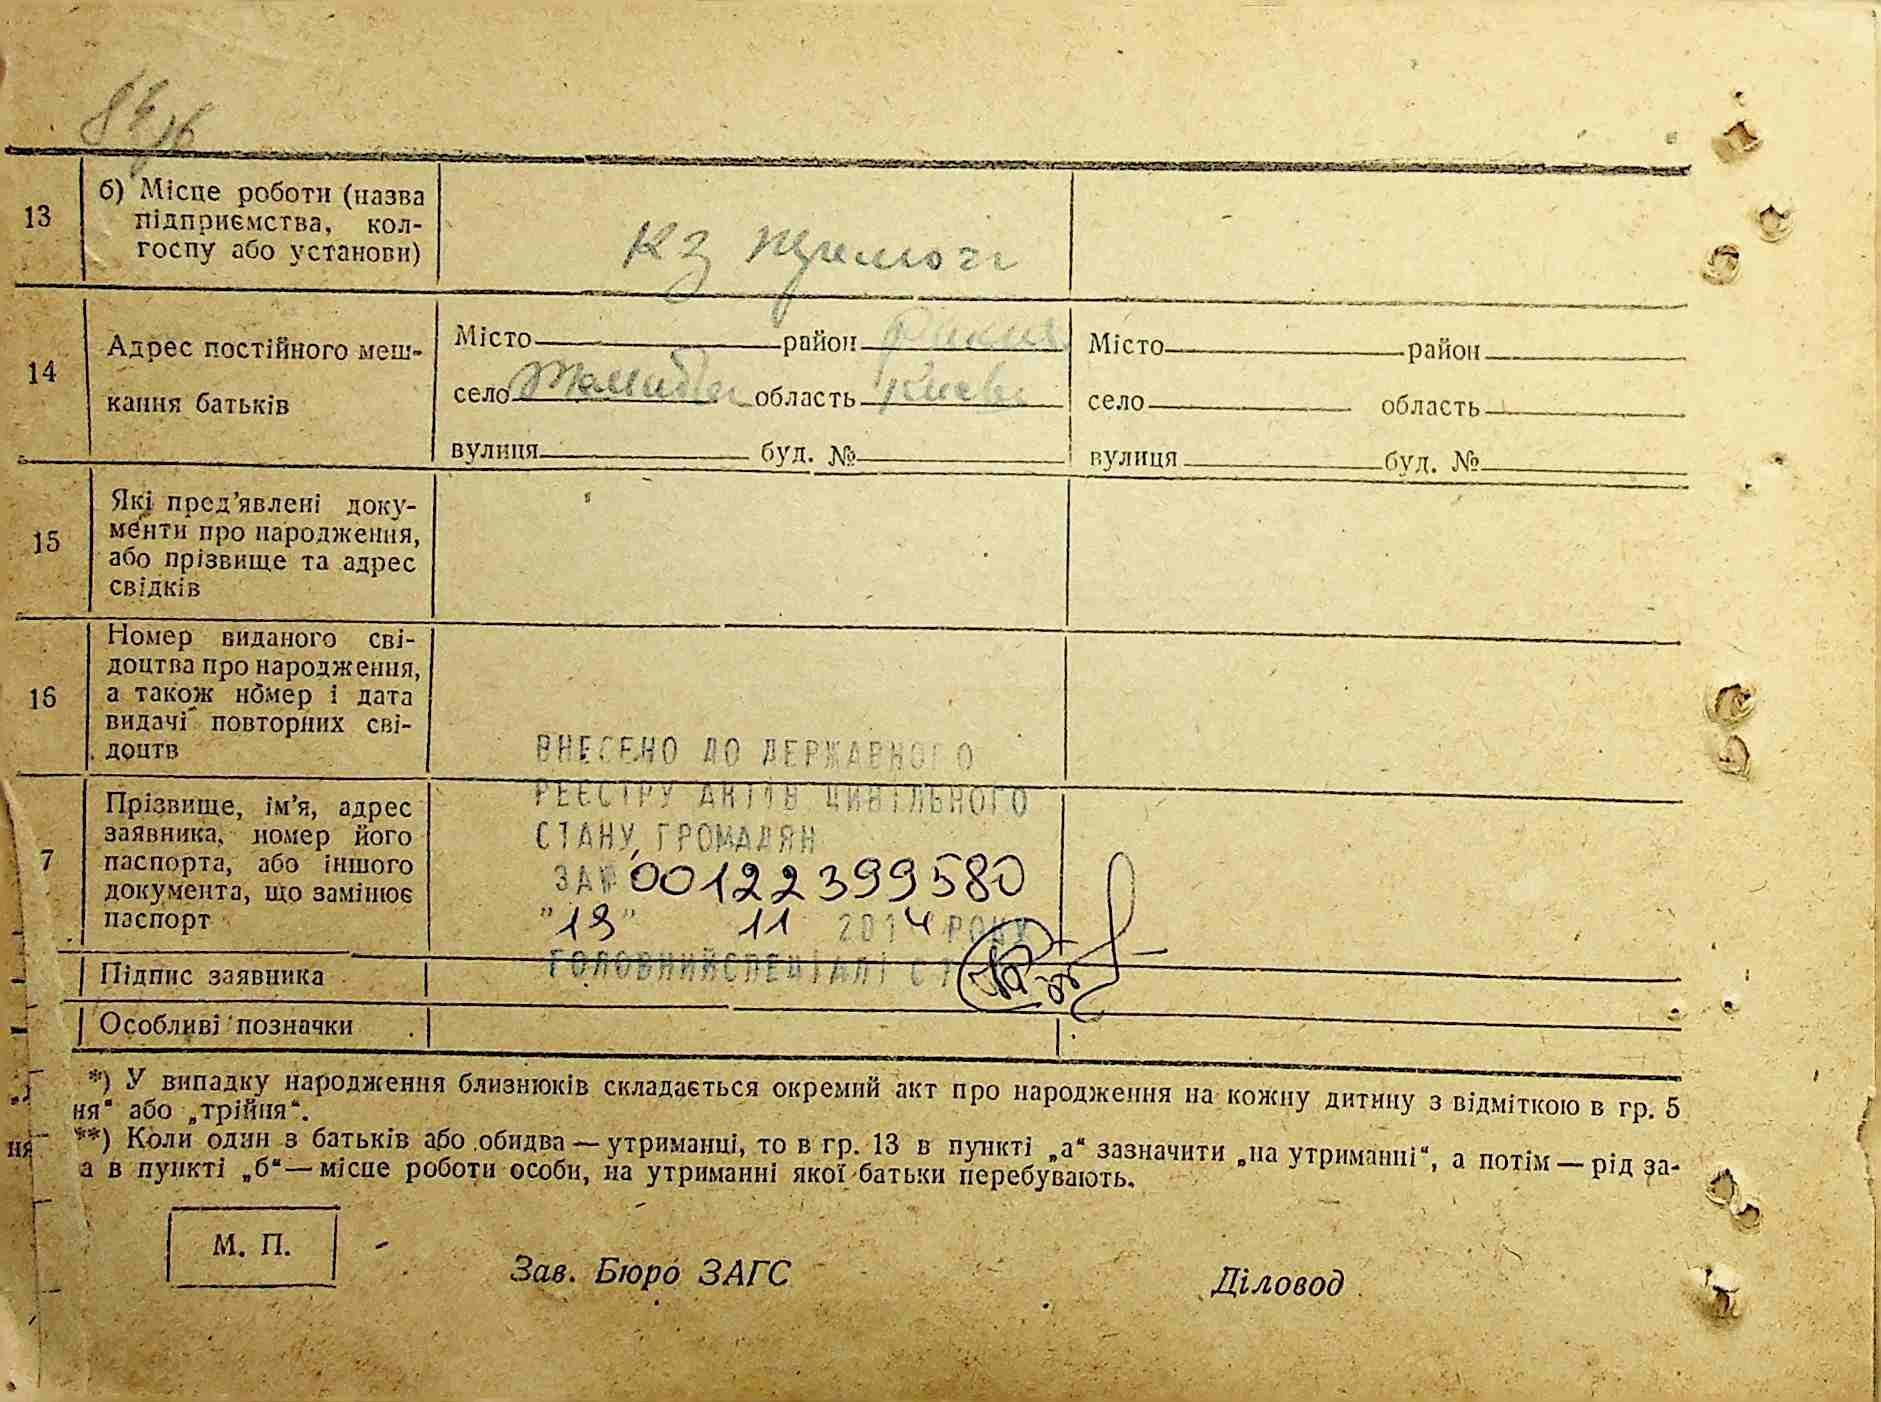 13
б) Місце роботи (назва
підприємства, кол-
госпу або установи)
КЗ
14
Адрес постійного меш-
кання батьків
Місто район
село область Києв
вулиця буд. №
Місто район
село область
вулиця буд. №
15
Які пред'явлені доку-
менти про народження,
або прізвище та адрес
свідків
16
Номер виданого сві-
доцтва про народження,
а також номер і дата
видачі повторних сві-
доцтв
ВНЕСЕНО ДО ДЕРЖАВНОГО
РЕЄСТРУ АКТІВ ЦИВІЛЬНОГО
СТАНУ ГРОМАДЯН
ЗА № 00122399580
"19" 11 2014 РОКУ
ГОЛОВНИЙ СПЕЦІАЛІСТ
7
Прізвище, ім'я, адрес
заявника, номер його
паспорта, або іншого
документа, що замінює
паспорт
Підпис заявника
Особливі позначки
*) У випадку народження близнюків складається окремий акт про народження на кожну дитину з відміткою в гр. 5
ня" або „трійня".
**) Коли один з батьків або обидва — утриманці, то в гр. 13 в пункті „а" зазначити „на утриманні", а потім — рід за-
а в пункті „б" — місце роботи особи, на утриманні якої батьки перебувають.
М. П.
Зав. Бюро ЗАГС
Діловод